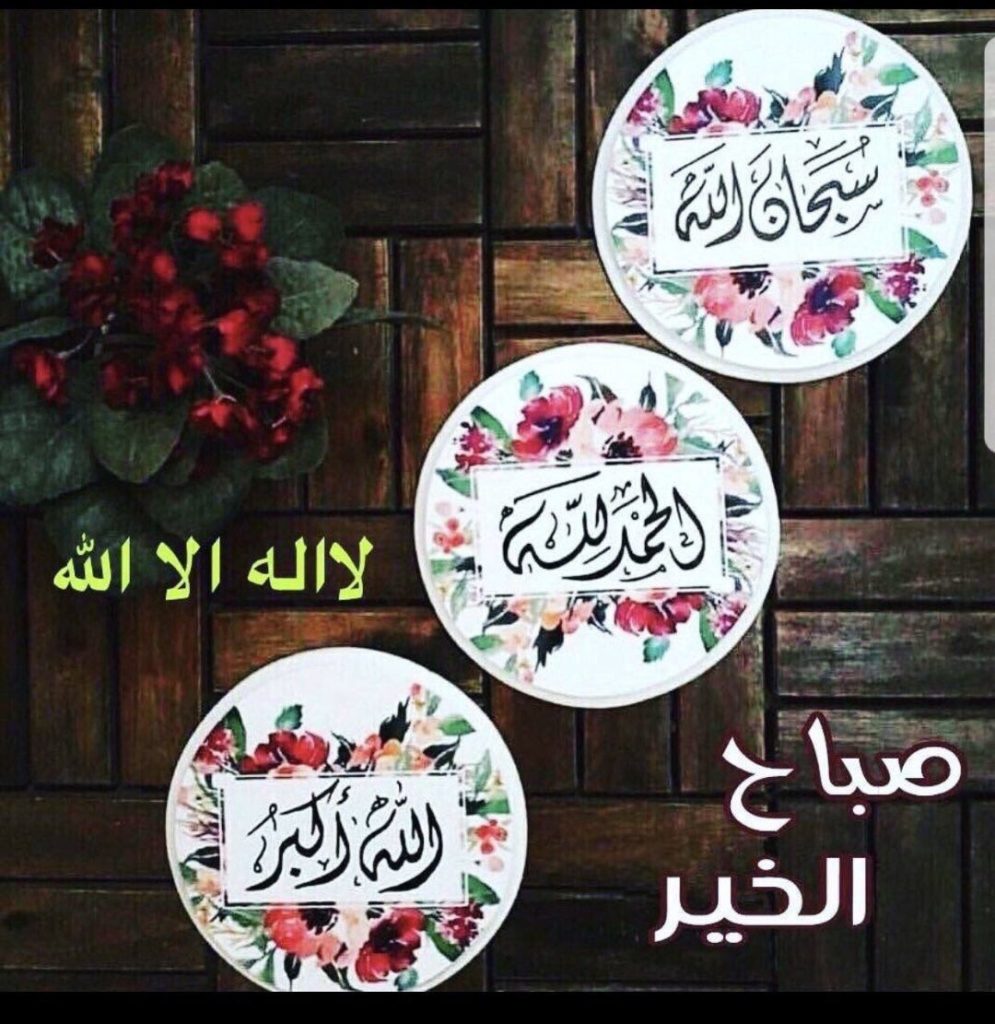 سُبْحَانَ اللَّه
الحَمْدُ لِلَّه
لااله الا الله
اللَّه أَكْبَرُ
صباح
الخير